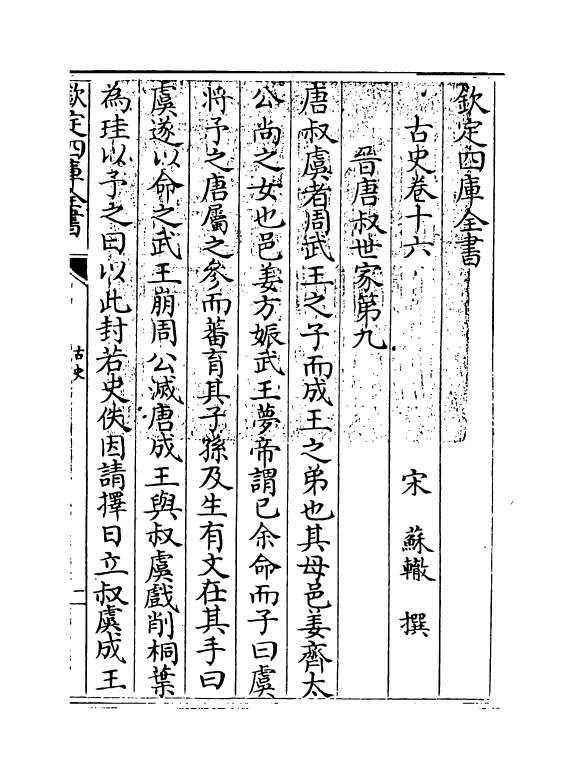 欽定四庫全書
古史卷十六
宋 蘇轍 撰
晉唐叔世家第九
唐叔虞者周武王之子而成王之弟也其母邑姜齊太
公尚之女也邑姜方娠武王夢帝謂已余命而子曰虞
將予之唐屬之參而蕃育其子孫及生有文在其手曰
虞遂以命之武王崩周公滅唐成王與叔虞戲削桐葉
為珪以予之曰以此封若史佚因請擇日立叔虞成王
欽定四庫全書
古史
一